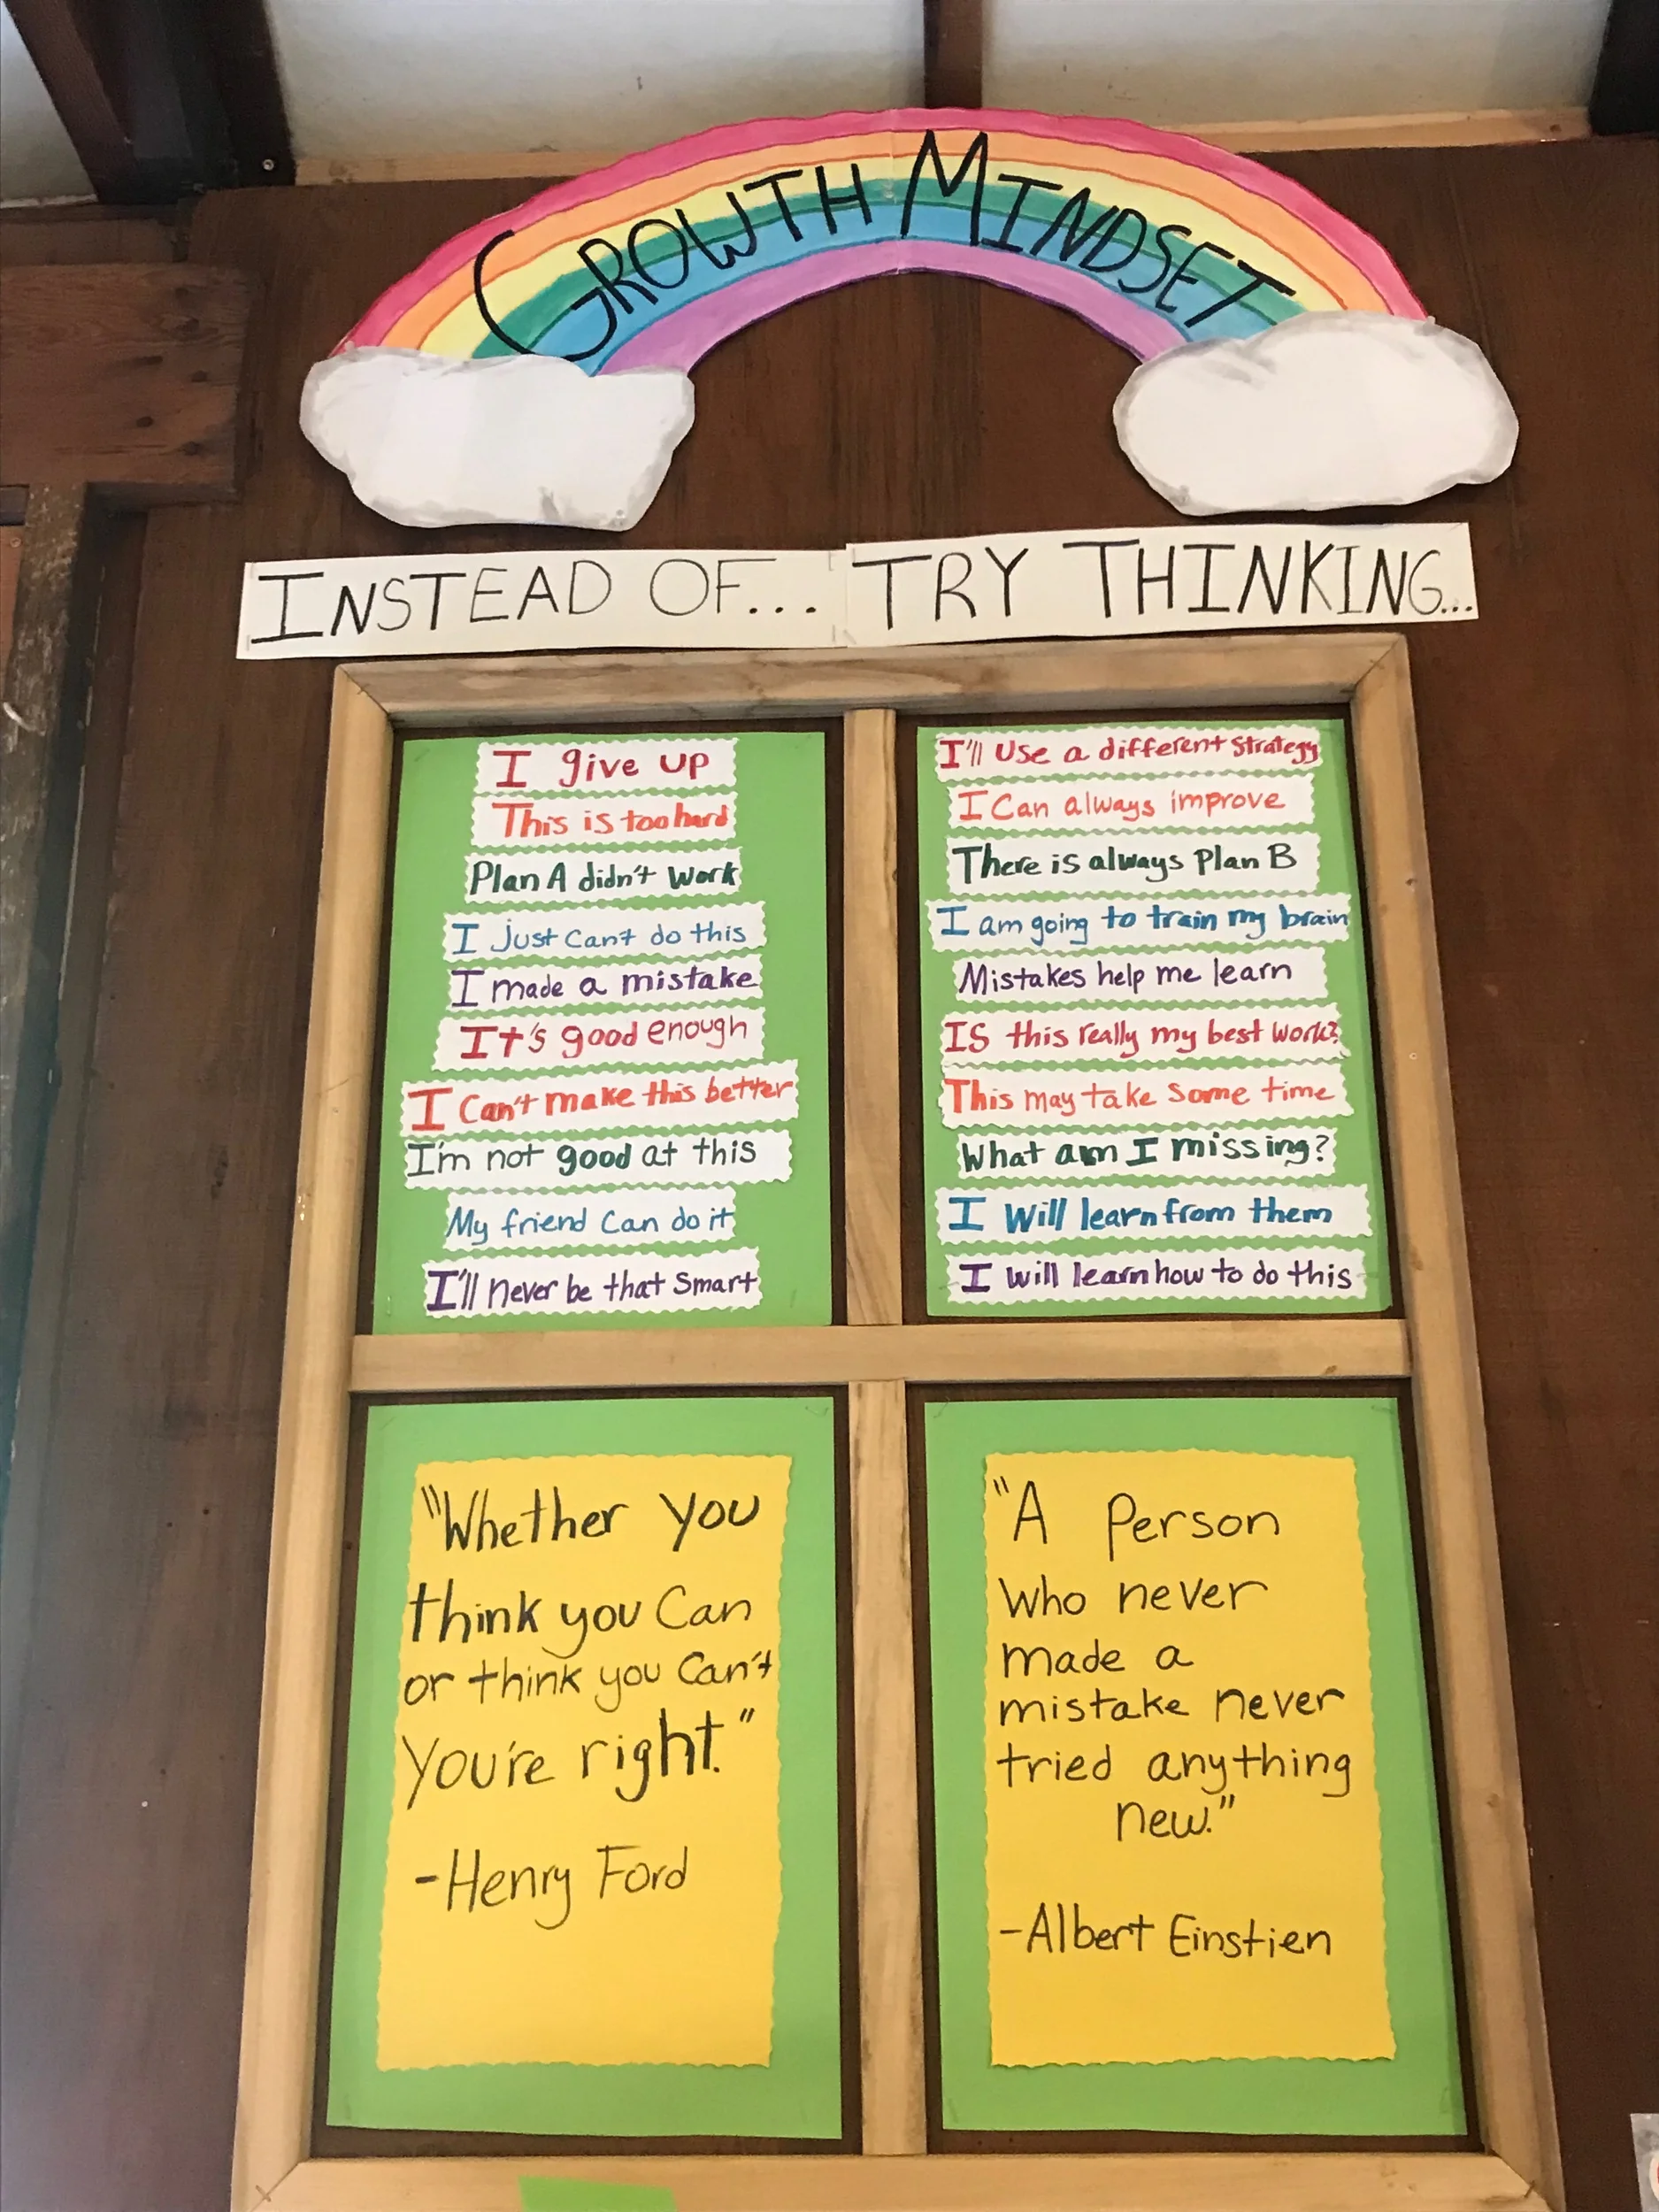 GROWTH MINDSET
INSTEAD OF... TRY THINKING...
I give up
This is too hard
Plan A didn't work
I just can't do this
I made a mistake
It's good enough
I can't make this better
I'm not good at this
My friend can do it
I'll never be that smart
I'll use a different strategy
I can always improve
There is always Plan B
I am going to train my brain
Mistakes help me learn
Is this really my best work?
This may take some time
What am I missing?
I will learn from them
I will learn how to do this
"Whether you
think you can
or think you can't
you're right."
-Henry Ford
"A person
who never
made a
mistake never
tried anything
new."
-Albert Einstien